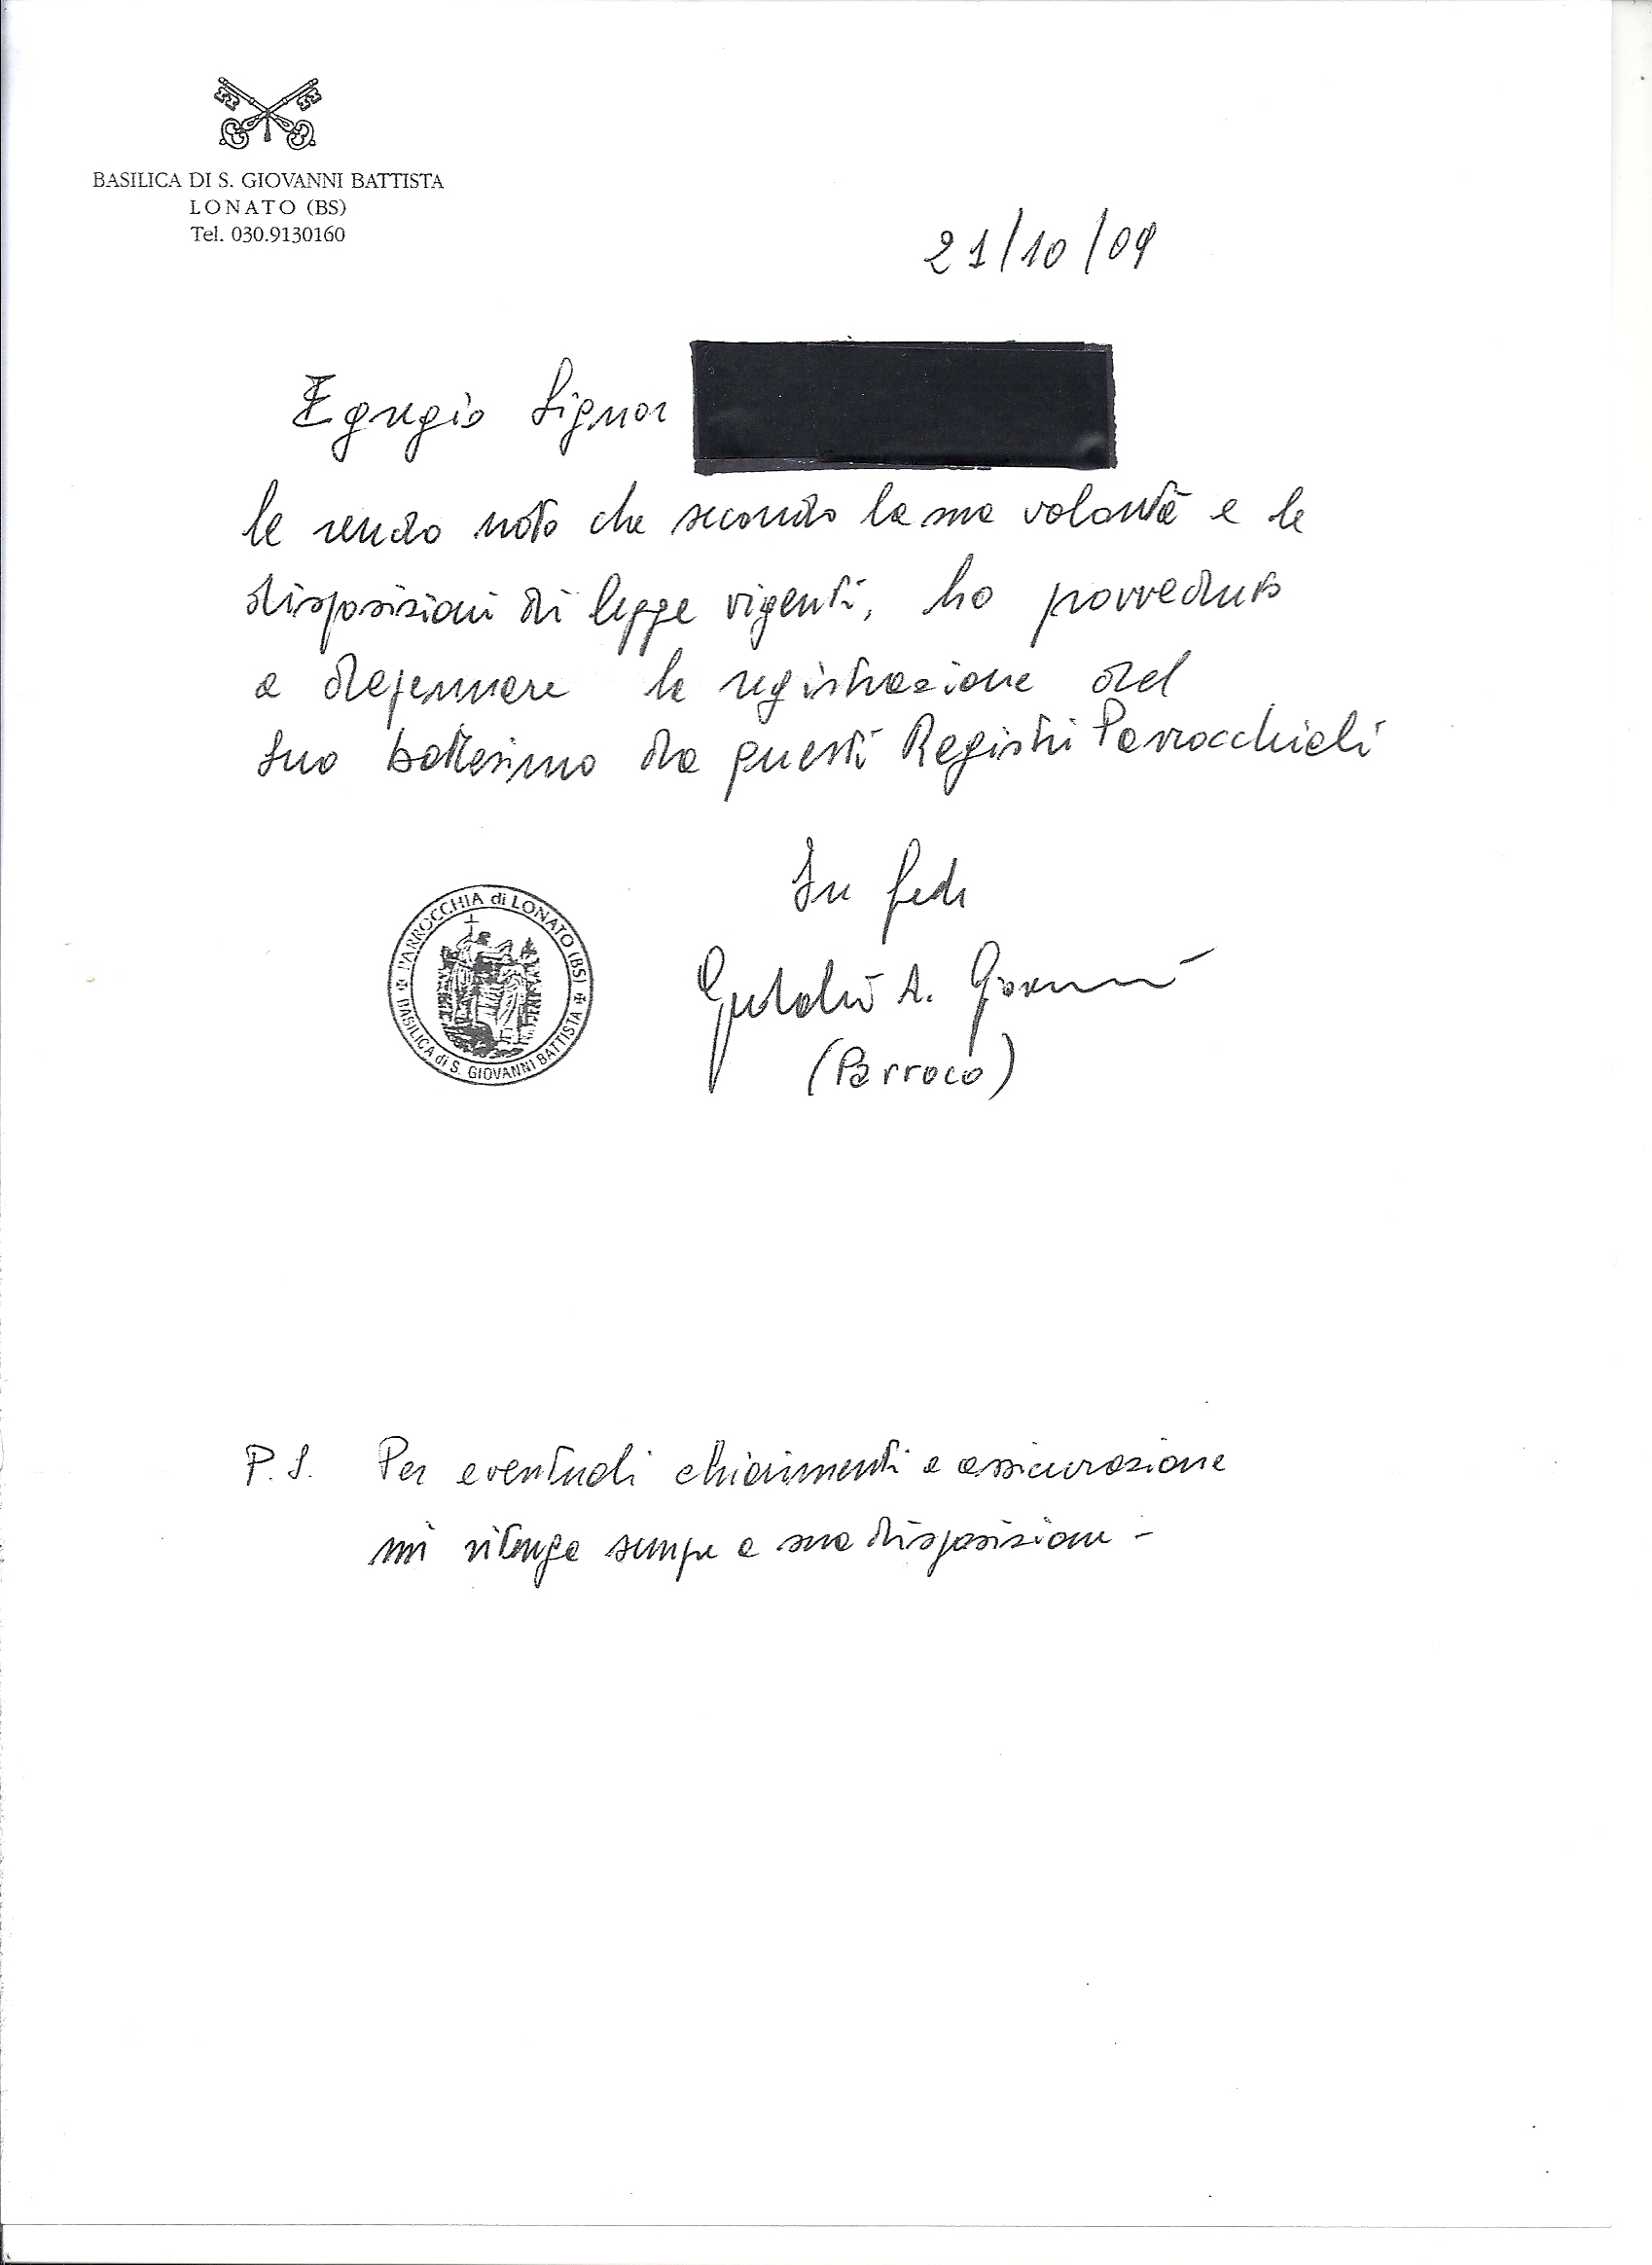 BASILICA DI S. GIOVANNI BATTISTA
LONATO (BS)
Tel. 030.9130160
21/10/09
Egregio Signor
le rendo noto che secondo la sua volontà e le
disposizioni di legge vigenti, ho provveduto
a depennare la registrazione del
suo battesimo da questi Registri Parrocchiali
In fede
A. Giovanni
(Parroco)
PARROCCHIA di LONATO (BS)
BASILICA di S. GIOVANNI BATTISTA
P.S. Per eventuali chiarimenti e assicurazione
mi ritenga sempre a sua disposizione -